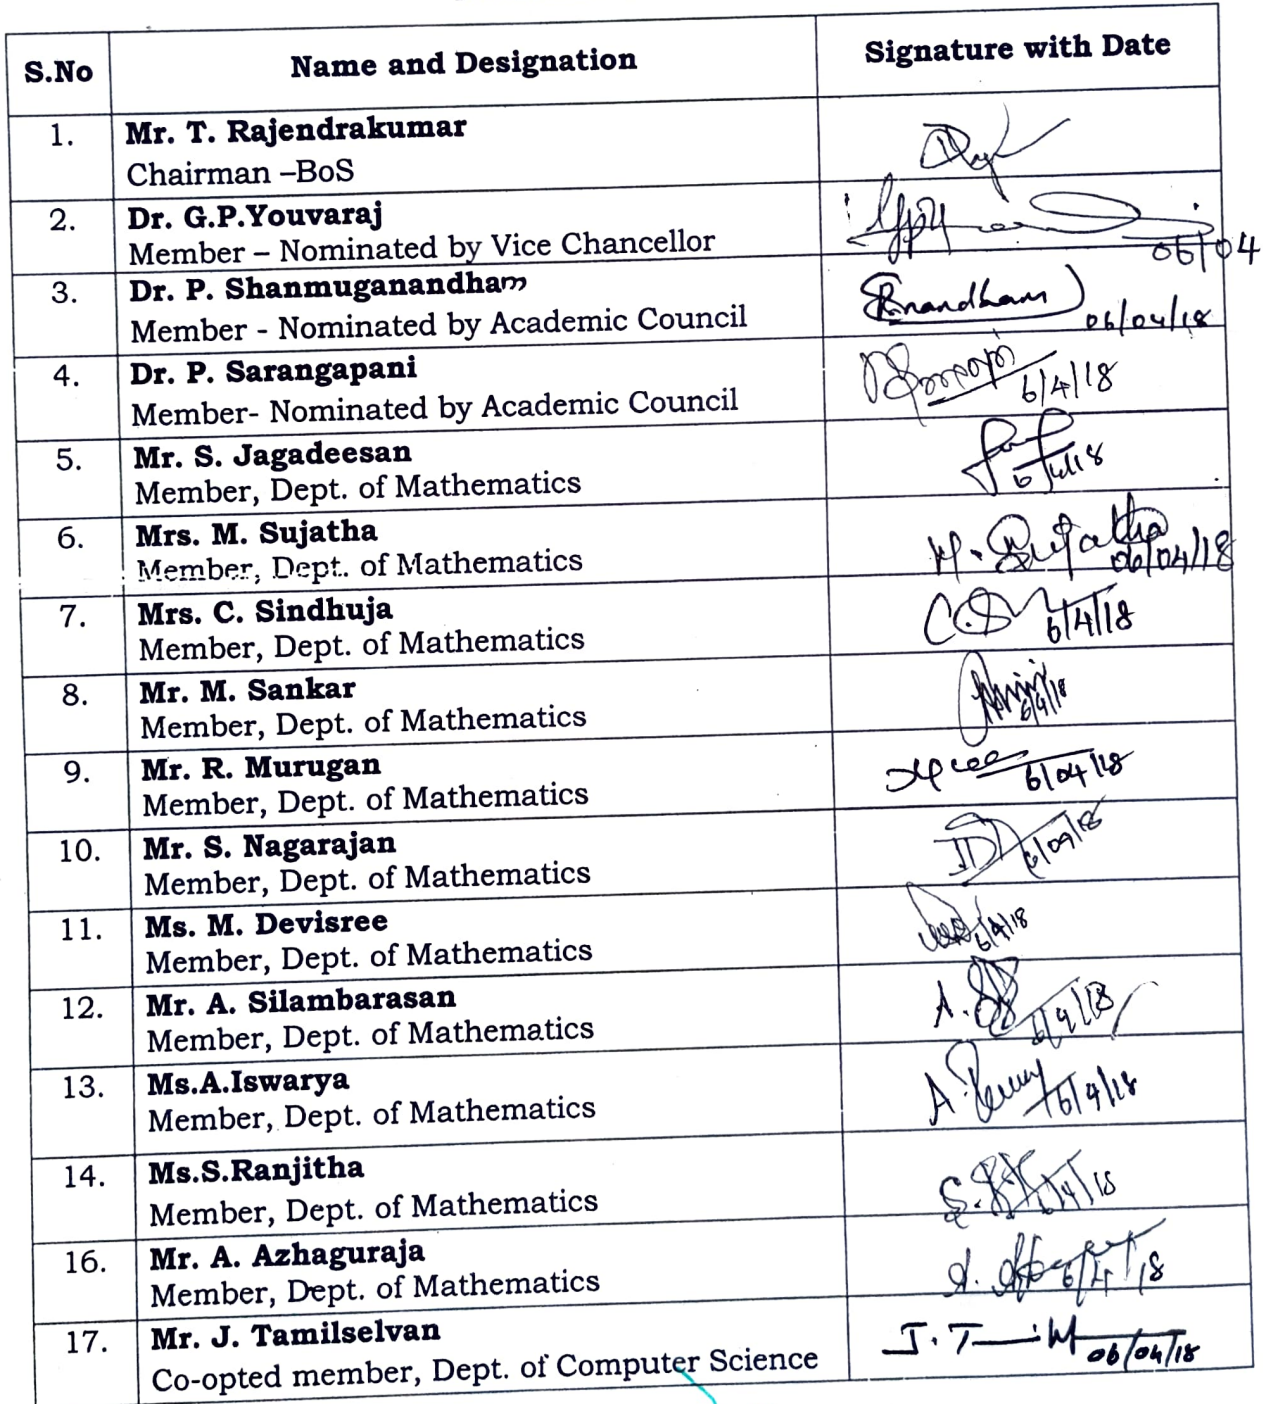 S.No Name and Designation Signature with Date
1. Mr. T. Rajendrakumar
Chairman –BoS
2. Dr. G.P.Youvaraj
Member – Nominated by Vice Chancellor
06/04
3. Dr. P. Shanmuganandham
Member - Nominated by Academic Council
06/04/18
4. Dr. P. Sarangapani
Member- Nominated by Academic Council
6/4/18
5. Mr. S. Jagadeesan
Member, Dept. of Mathematics
6/4/18
6. Mrs. M. Sujatha M. Sujatha
Member, Dept. of Mathematics 06/04/18
7. Mrs. C. Sindhuja
Member, Dept. of Mathematics 6/4/18
8. Mr. M. Sankar
Member, Dept. of Mathematics 6/4/18
9. Mr. R. Murugan
Member, Dept. of Mathematics 6/04/18
10. Mr. S. Nagarajan
Member, Dept. of Mathematics
11. Ms. M. Devisree
Member, Dept. of Mathematics 6/4/18
12. Mr. A. Silambarasan
Member, Dept. of Mathematics 6/4/18
13. Ms.A.Iswarya
Member, Dept. of Mathematics 6/4/18
14. Ms.S.Ranjitha
Member, Dept. of Mathematics 6/4/18
16. Mr. A. Azhaguraja
Member, Dept. of Mathematics 6/4/18
17. Mr. J. Tamilselvan
Co-opted member, Dept. of Computer Science 06/04/18